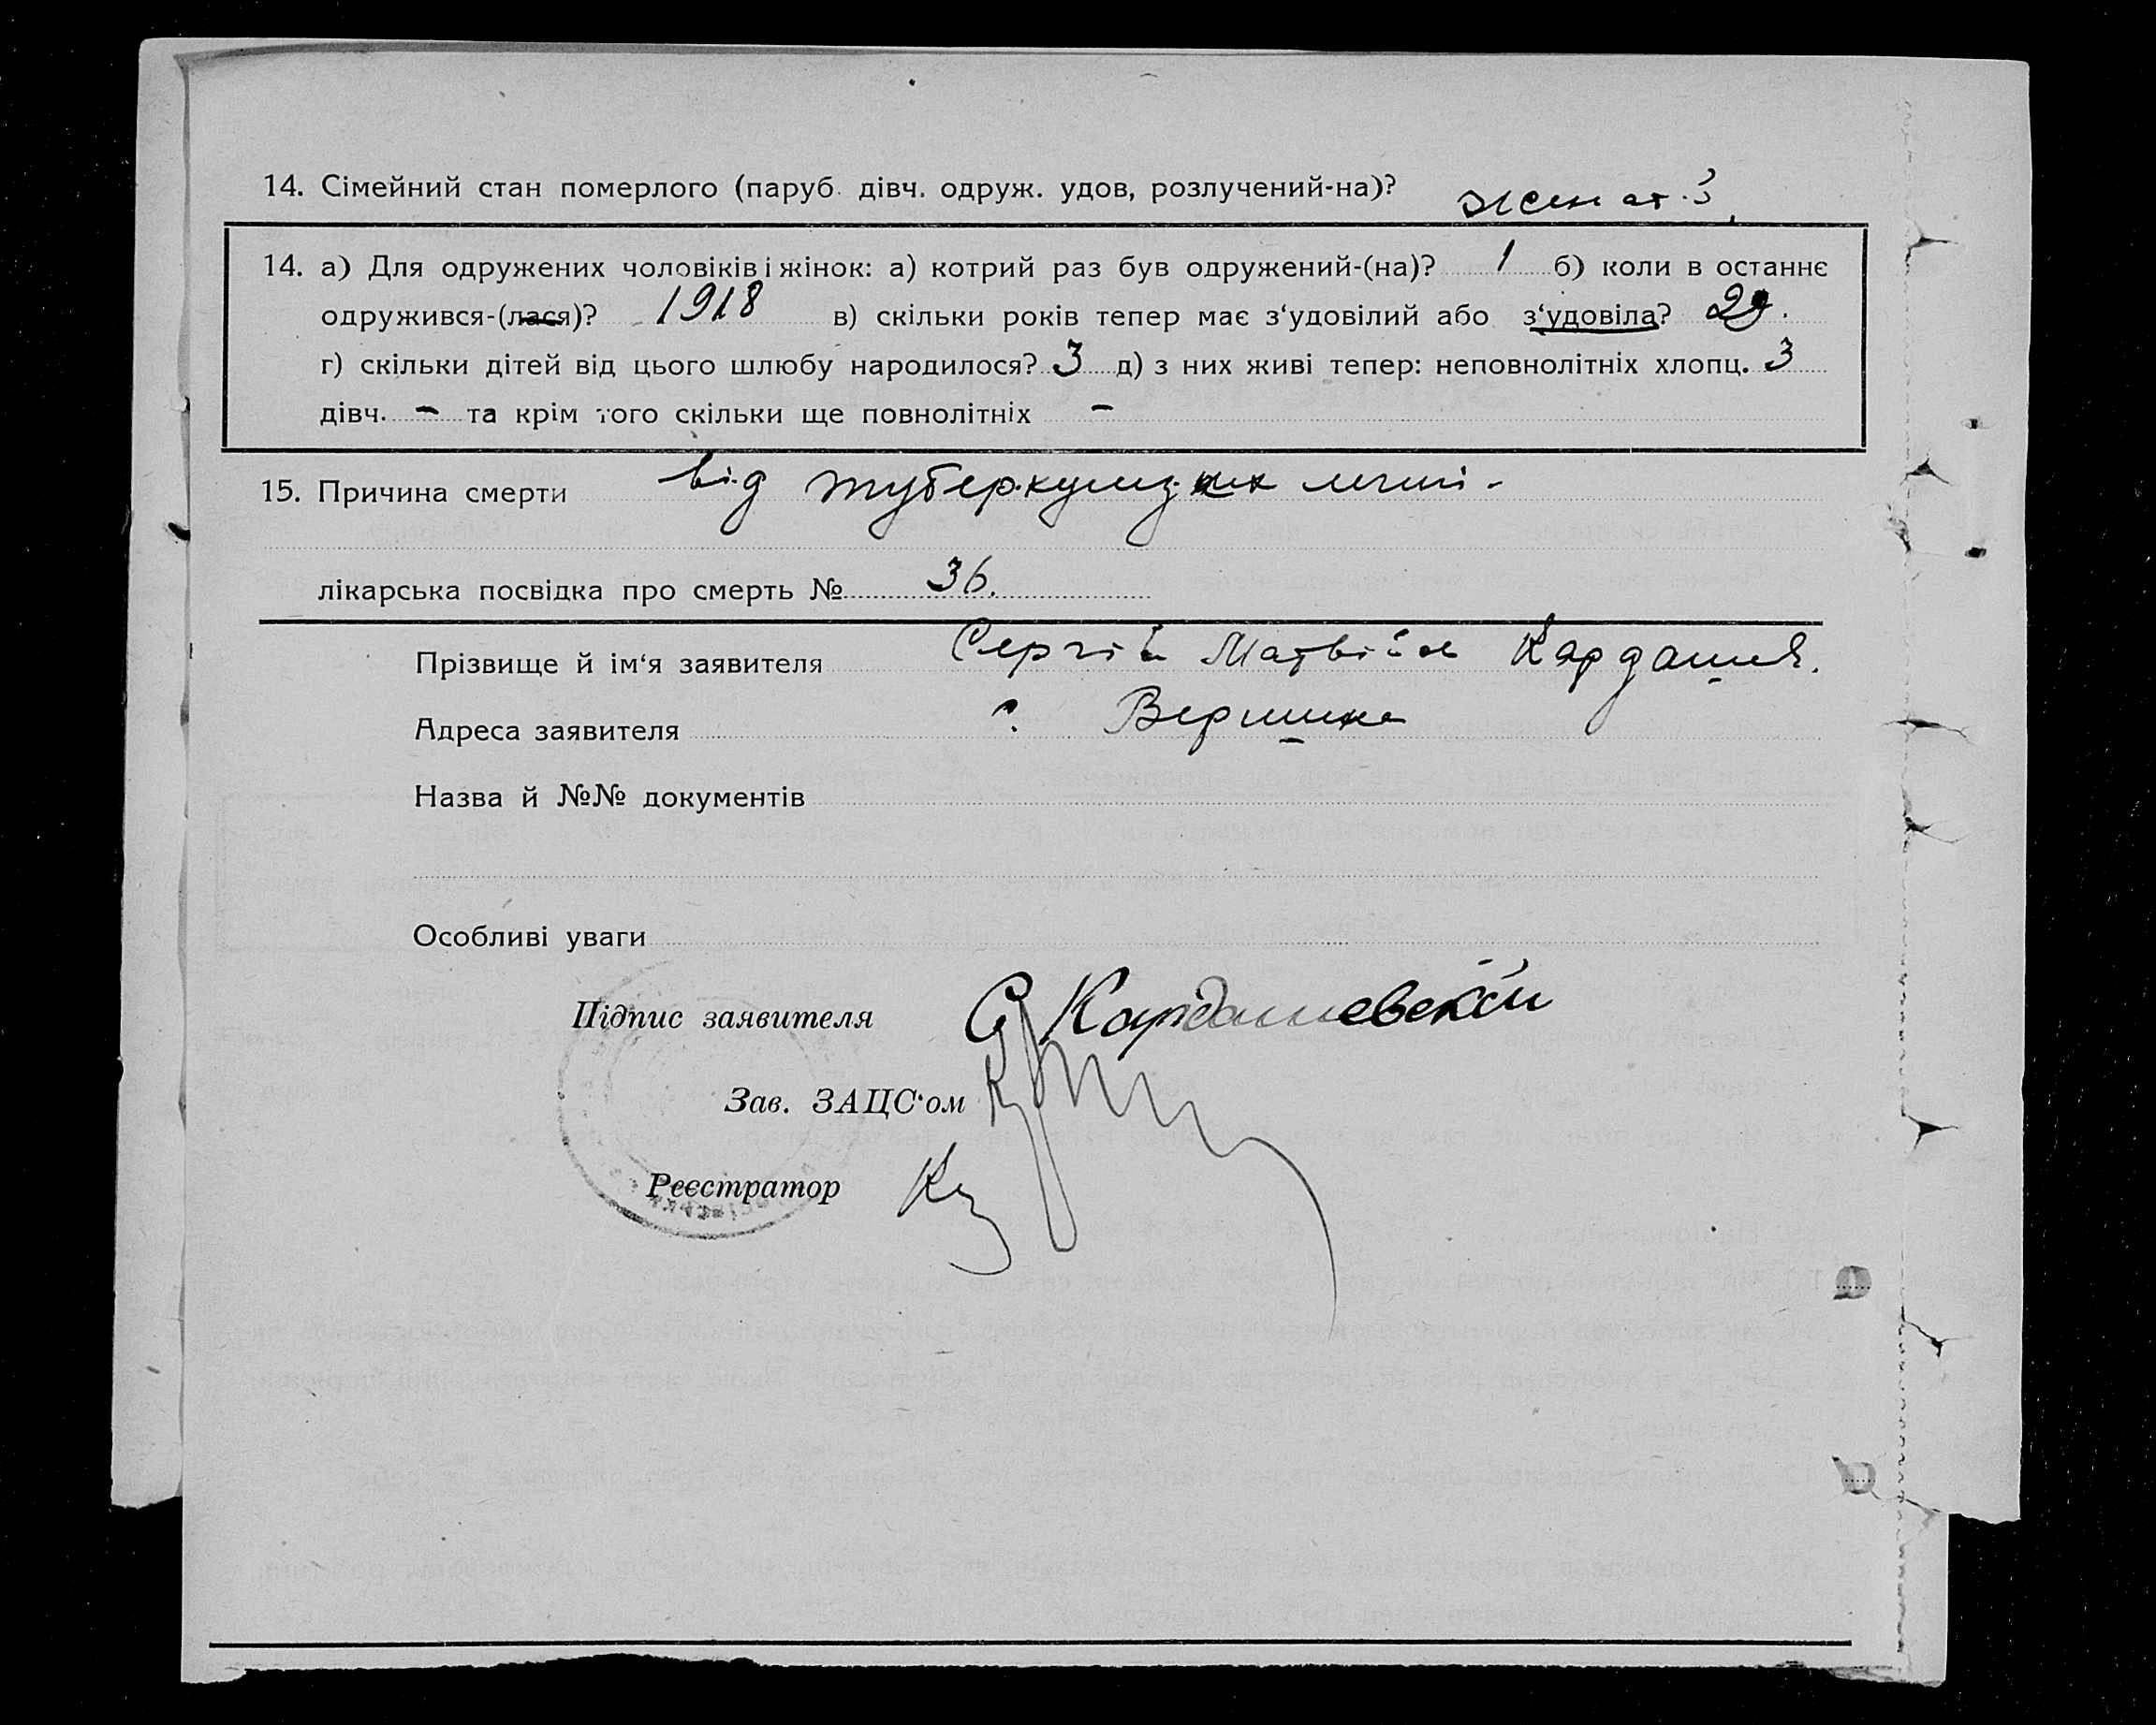 14. Сімейний стан померлого (паруб. дівч. одруж. удов, розлучений-на)? женат.
14. а) Для одружених чоловіків і жінок: а) котрий раз був одружений-(на)? 1 б) коли в останнє
одружився-(лася)? 1918 в) скільки років тепер має з‘удовілий або з‘удовіла? 29.
г) скільки дітей від цього шлюбу народилося? 3 д) з них живі тепер: неповнолітніх хлопц. 3
дівч. – та крім того скільки ще повнолітніх –
15. Причина смерти від туберкульоз
лікарська посвідка про смерть № 36.
Прізвище й ім‘я заявителя Сергій Матвієв Кардаш
Адреса заявителя с. Вершина
Назва й №№ документів
Особливі уваги
Підпис заявителя С Кардашевскій
Зав. ЗАЦС‘ом
Реєстратор